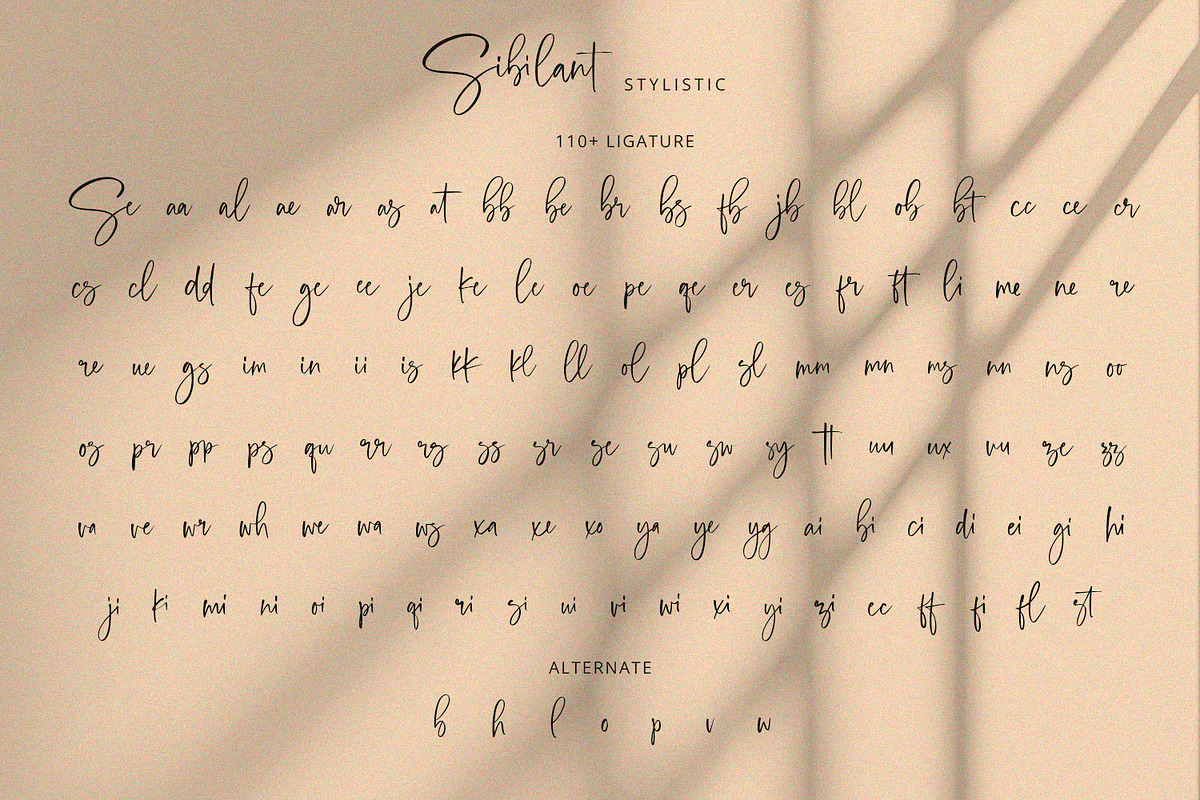 Sibilant STYLISTIC
110+ LIGATURE
Se aa al ae ar as at bb be br bs fb jb bl ob bt cc ce cr
cs cl dd fe ge ee je ke le oe pe qe er es fr ft li me ne re
re ue gs im in ii is kk kl ll ol pl sl mm mn ms nn ns oo
os pr pp ps qu rr rs ss sr se su sw sy tt uu ux vu ze zz
va ve wr wh we wa ws xa xe xo ya ye yg ai bi ci di ei gi hi
ji ki mi ni oi pi qi ri si ui vi wi xi yi zi ec ff fi fl st
ALTERNATE
b h l o p v w